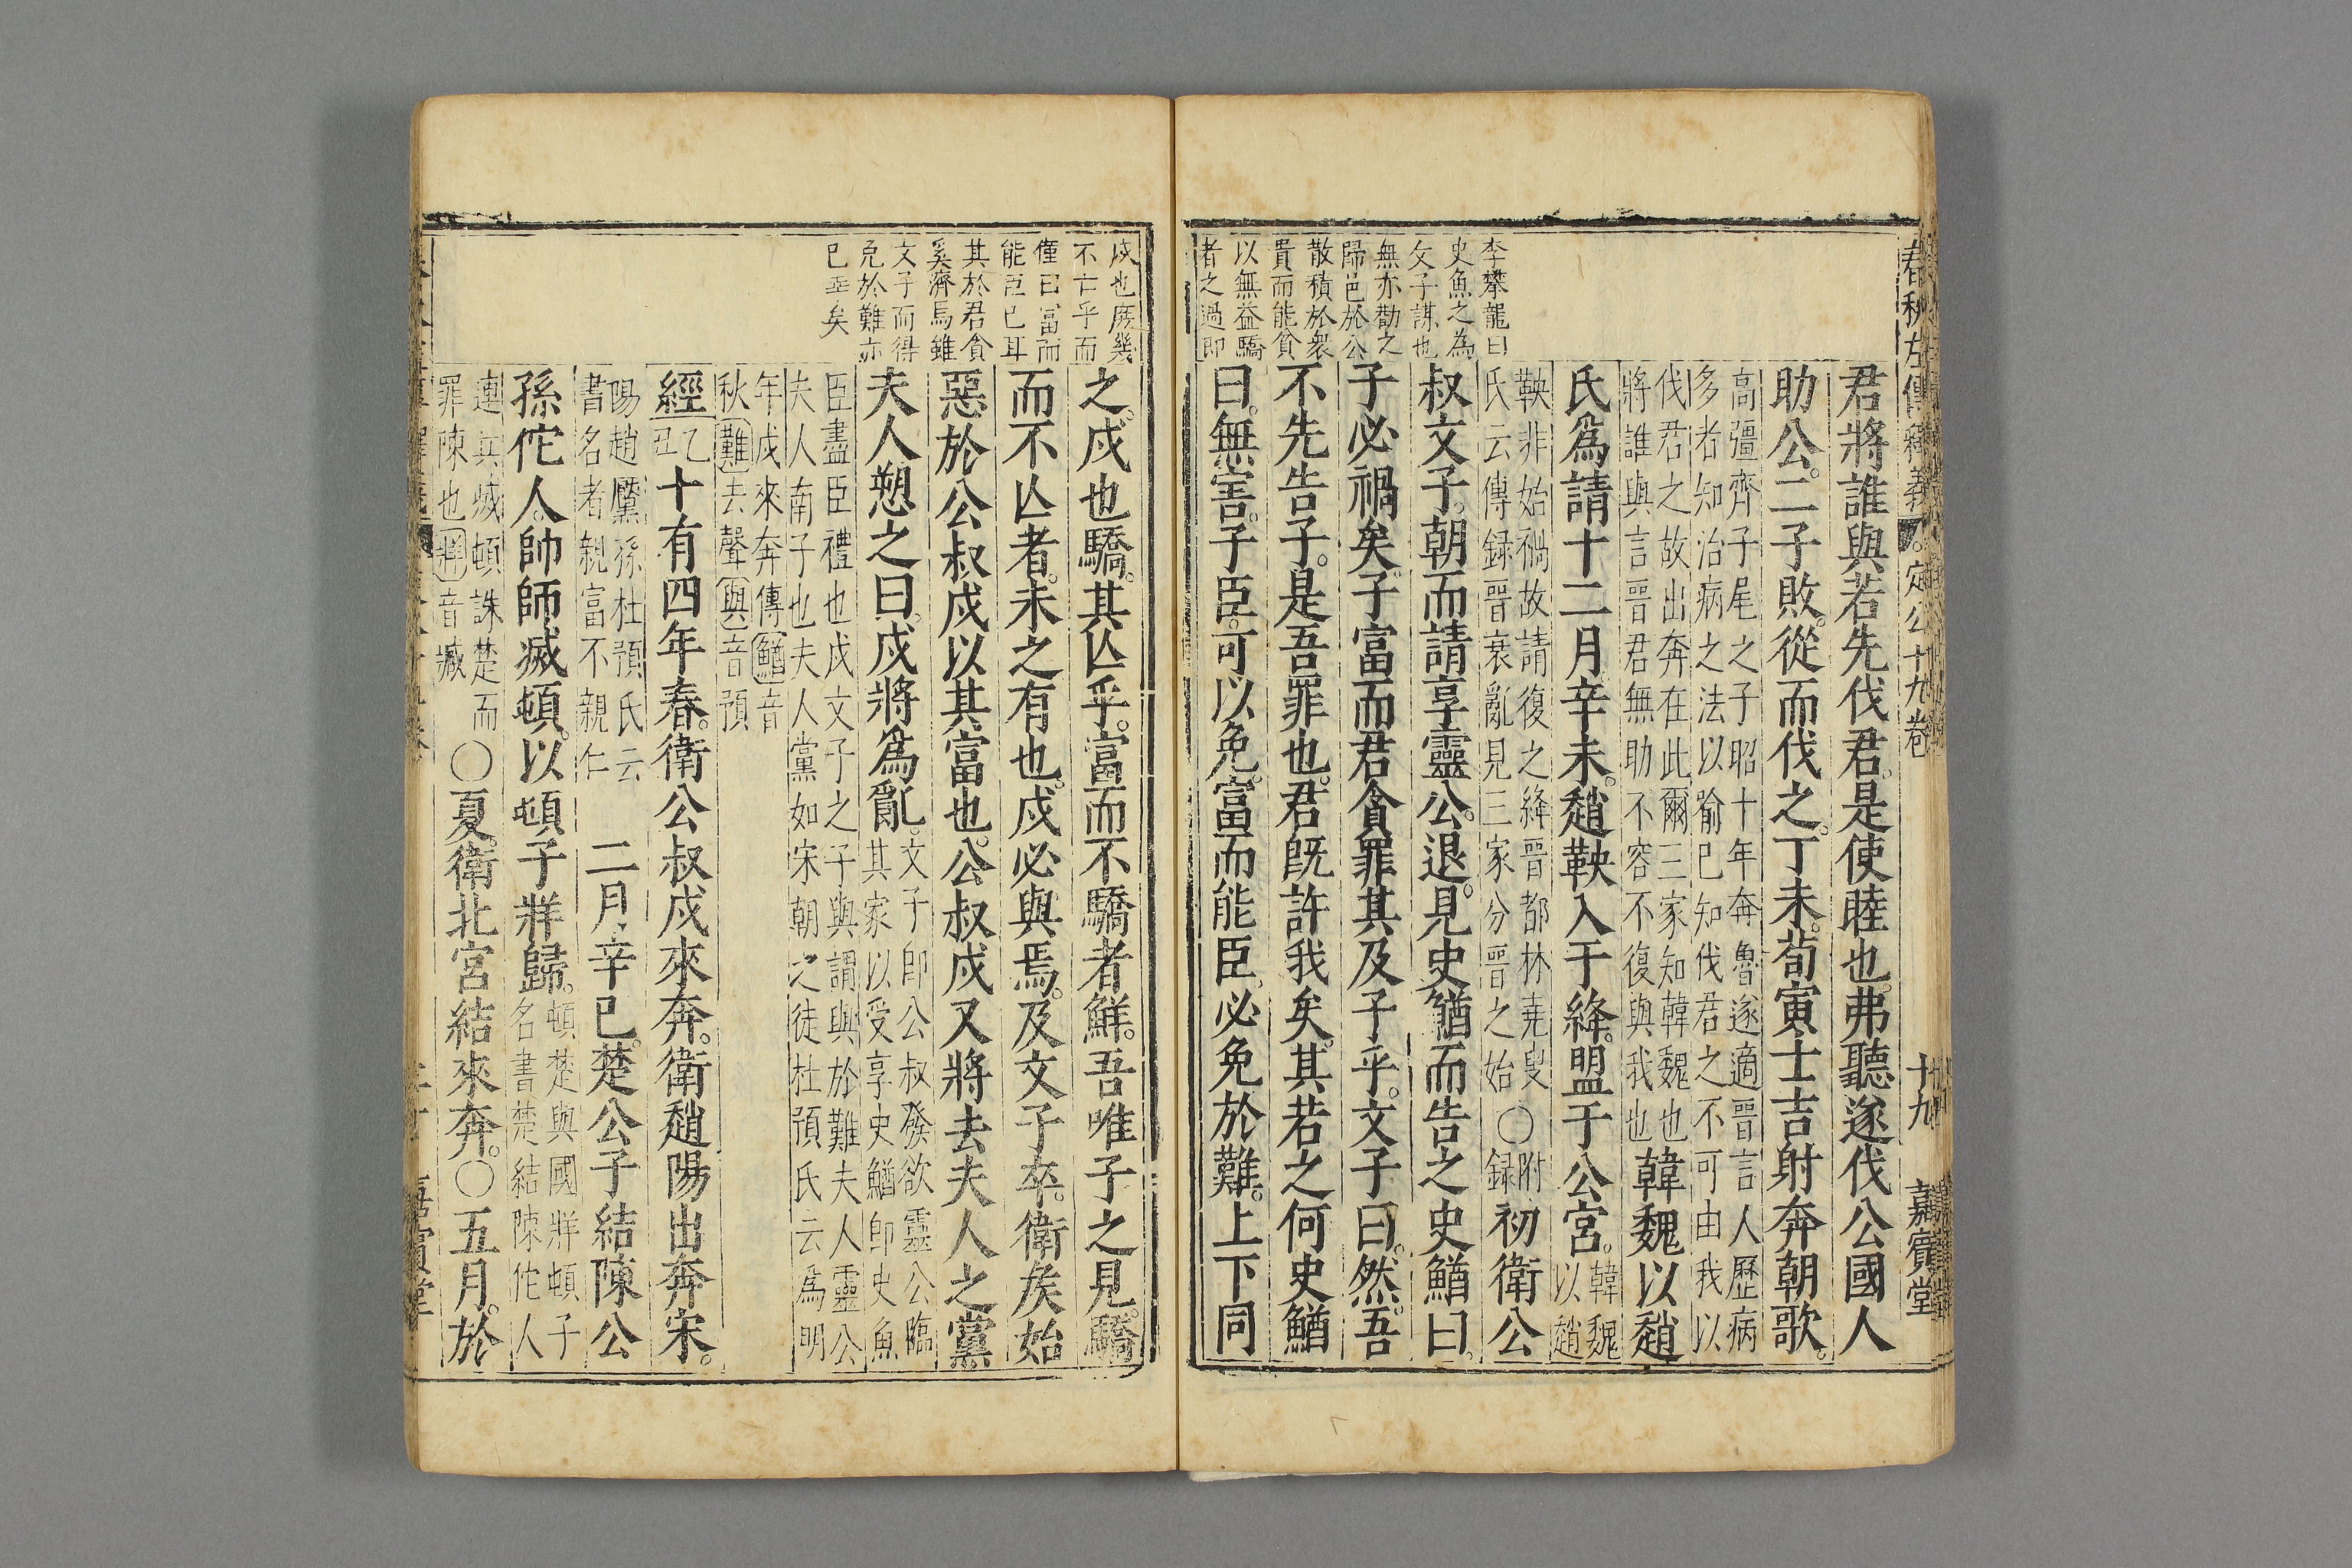 春秋左傳釋義 定公十九卷 十九 嘉賓堂
李攀龍曰
史魚之為
文子謀也
無亦勸之
歸邑於公
散積於衆
貴而能貧
以無益驕
者之過即
君將誰與若先伐君是使睦也弗聽遂伐公國人
助公二子敗從而伐之丁未荀寅士吉射奔朝歌
高彊齊子尾之子昭十年奔魯遂適晉言人歷病
多者知治病之法以喻已知伐君之不可由我以
伐君之故出奔在此爾三家知韓魏也
將誰與言晉君無助不容不復與我也
韓魏以趙
氏爲請十二月辛未趙鞅入于絳盟于公宮
韓魏
以趙
鞅非始禍故請復之絳晉都林堯叟
氏云傳録晉衰亂見三家分晉之始
○附
録
初衛公
叔文子朝而請享靈公退見史鰌而告之史鰌曰
子必禍矣子富而君貪罪其及子乎文子曰然吾
不先告子是吾罪也君旣許我矣其若之何史鰌
曰無害子臣可以免富而能臣必免於難上下同
戍也庶幾
不亡乎而
僅曰富而
能臣已耳
其於君貪
奚濟焉雖
文子而得
免於難亦
已幸矣
之戍也驕其亾乎富而不驕者鮮吾唯子之見驕
而不亾者未之有也戍必與焉及文子卒衛矦始
惡於公叔戍以其富也公叔戍又將去夫人之黨
夫人愬之曰戍將爲亂
文子即公叔發欲靈公臨
其家以受享史鰌即史魚
臣盡臣禮也戍文子之子與謂與於難夫人靈公
夫人南子也夫人黨如宋朝之徒杜預氏云爲明
年戍來奔傳鰌音
秋難去聲與音預
經
乙
丑
十有四年春衛公叔戍來奔衛趙陽出奔宋
陽趙黶孫杜預氏云
書名者親富不親仁
二月辛巳楚公子結陳公
孫佗人帥師滅頓以頓子牂歸
頓楚與國牂頓子
名書楚結陳佗人
連兵滅頓誅楚而
罪陳也牂音臧
○夏衛北宮結來奔○五月於